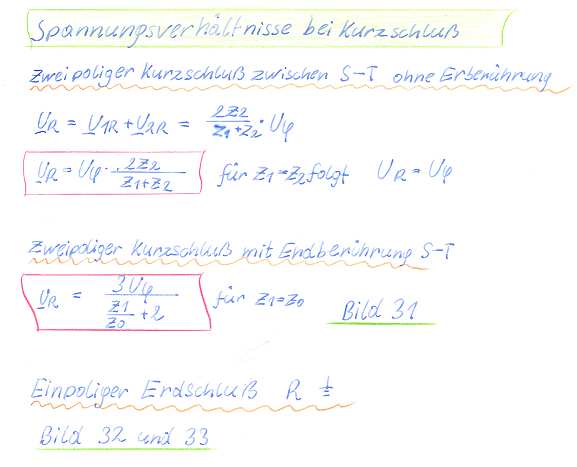 Spannungsverhältnisse bei Kurzschluß
Zweipoliger Kurzschluß zwischen S-T ohne Erberührung
U̲R = U̲1R + U̲2R = 2Z2 / (Z1+Z2) · Uφ
U̲R = Uφ · 2Z2 / (Z1+Z2) für Z1=Z2 folgt UR = Uφ
Zweipoliger Kurzschluß mit Endberührung S-T
U̲R = 3Uφ / (Z1/Z0 + 2) für Z1=Z0 Bild 31
Einpoliger Erdschluß R ⏚
Bild 32 und 33